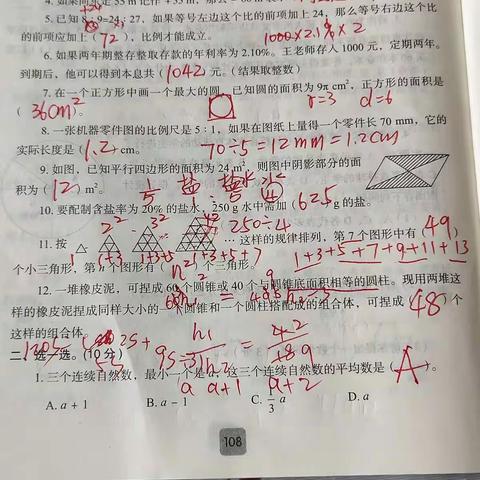 5.已知8:9=24:27，如果等号左边这个比的前项加上24，那么等号右边这个比
的前项应加上(72)，比例才成立。
1000×2.1%×2
6.如果两年期整存整取存款的年利率为2.10%。王老师存入1000元，定期两年。
到期后，他可以得到本息共(1042)元。(结果取整数)
7.在一个正方形中画一个最大的圆，已知圆的面积为9π cm²，正方形的面积是
(36cm²)。
r=3 d=6
8.一张机器零件图的比例尺是5:1，如果在图纸上量得一个零件长70 mm，它的
实际长度是(1.2)cm。
70÷5=12mm=1.2cm
9.如图，已知平行四边形的面积为24 m²，则图中阴影部分的面
积为(12)m²。
10.要配制含盐率为20%的盐水，250 g水中需加(62.5)g的盐。
250÷4
2² 3² 4²
11.按 … 这样的规律排列，第7个图形中有(49)
1 1+3 1+3+5 1+3+5+7
1+3+5+7+9+11+13
个小三角形，第n个图形有(n²)个三角形。
12.一堆橡皮泥，可捏成60个圆锥或40个与圆锥底面积相等的圆柱。现用两堆这
样的橡皮泥捏成同样大小的一个圆锥和一个圆柱搭配成的组合体，可捏成(48)个
这样的组合体。
二、选一选。(10分)
1.三个连续自然数，最小一个是a，这三个连续自然数的平均数是(A)。
a a+1 a+2
A. a+1 B. a-1 C. 1/3 a D. a
108